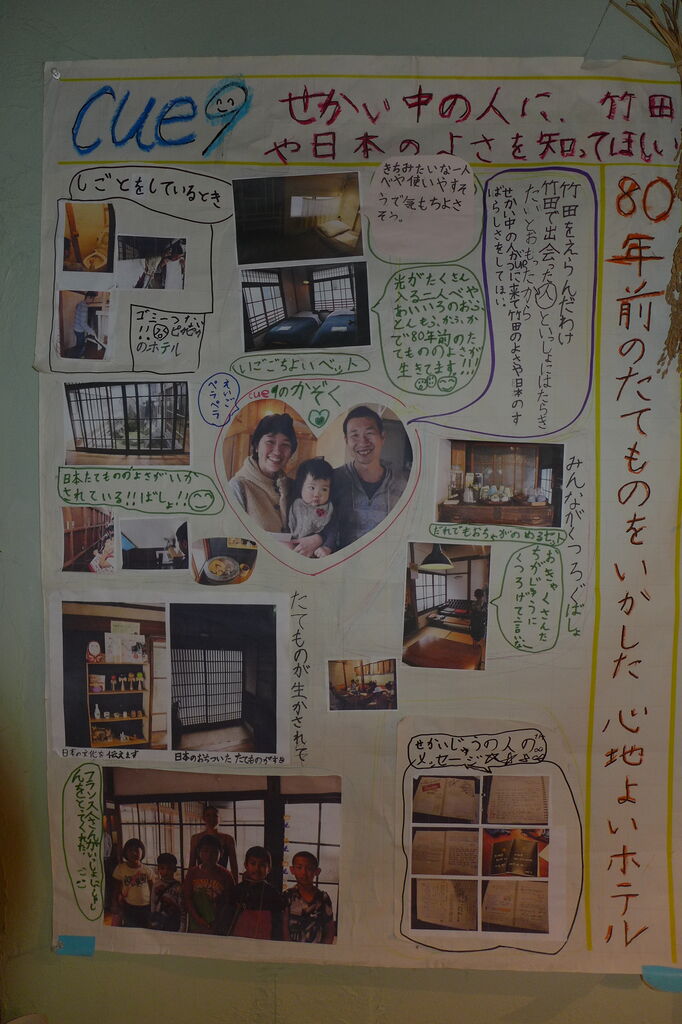 cue9
せかい中の人に、竹田
や日本のよさを知ってほしい
80年前のたてものをいかした心地よいホテル
しごとをしているとき
ゴミ一つない
!!ピカピカ
のホテル
きちみたいな一人
べや使いやすそ
うで気もちよさ
そう。
竹田をえらんだわけ
竹田で出会った人といっしょにはたらき
たいとおもったから
せかい中の人がcueに来て竹田のよさや日本のす
ばらしさをしてほしい。
光がたくさん
入る二人べや
あいいろのおふ
とん
で80年前のた
てもののよさが
生きてます!!!
いごごちよいベット
えいご
ペラペラ
cue9のかぞく
日本たてもののよさがいか
されている!!ばしょ!!
みんながくつろぐばしょ
だれでもおちゃがのめるセット
おきゃくさんた
ちがじゆうに
くつろげて言いな〜
たてものが生かされて
日本の文化を伝えます
日本のおちついたたてものがすき
せかいじゅうの人の
メッセージ
フランス人さんがいっしょにしゃし
んをとってくれた。